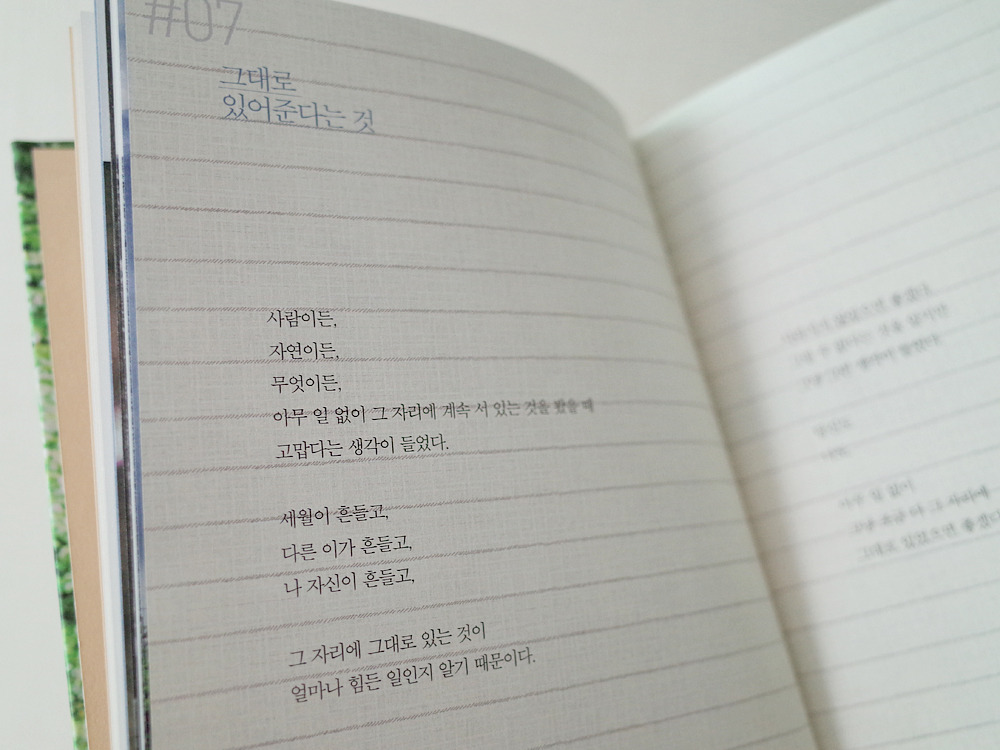 #07
그대로
있어준다는 것
사람이든,
자연이든,
무엇이든,
아무 일 없이 그 자리에 계속 서 있는 것을 봤을 때
고맙다는 생각이 들었다.
세월이 흔들고,
다른 이가 흔들고,
나 자신이 흔들고,
그 자리에 그대로 있는 것이
얼마나 힘든 일인지 알기 때문이다.
아무 일 없이
그냥 조금 더 그 자리에
그대로 있었으면 좋겠다